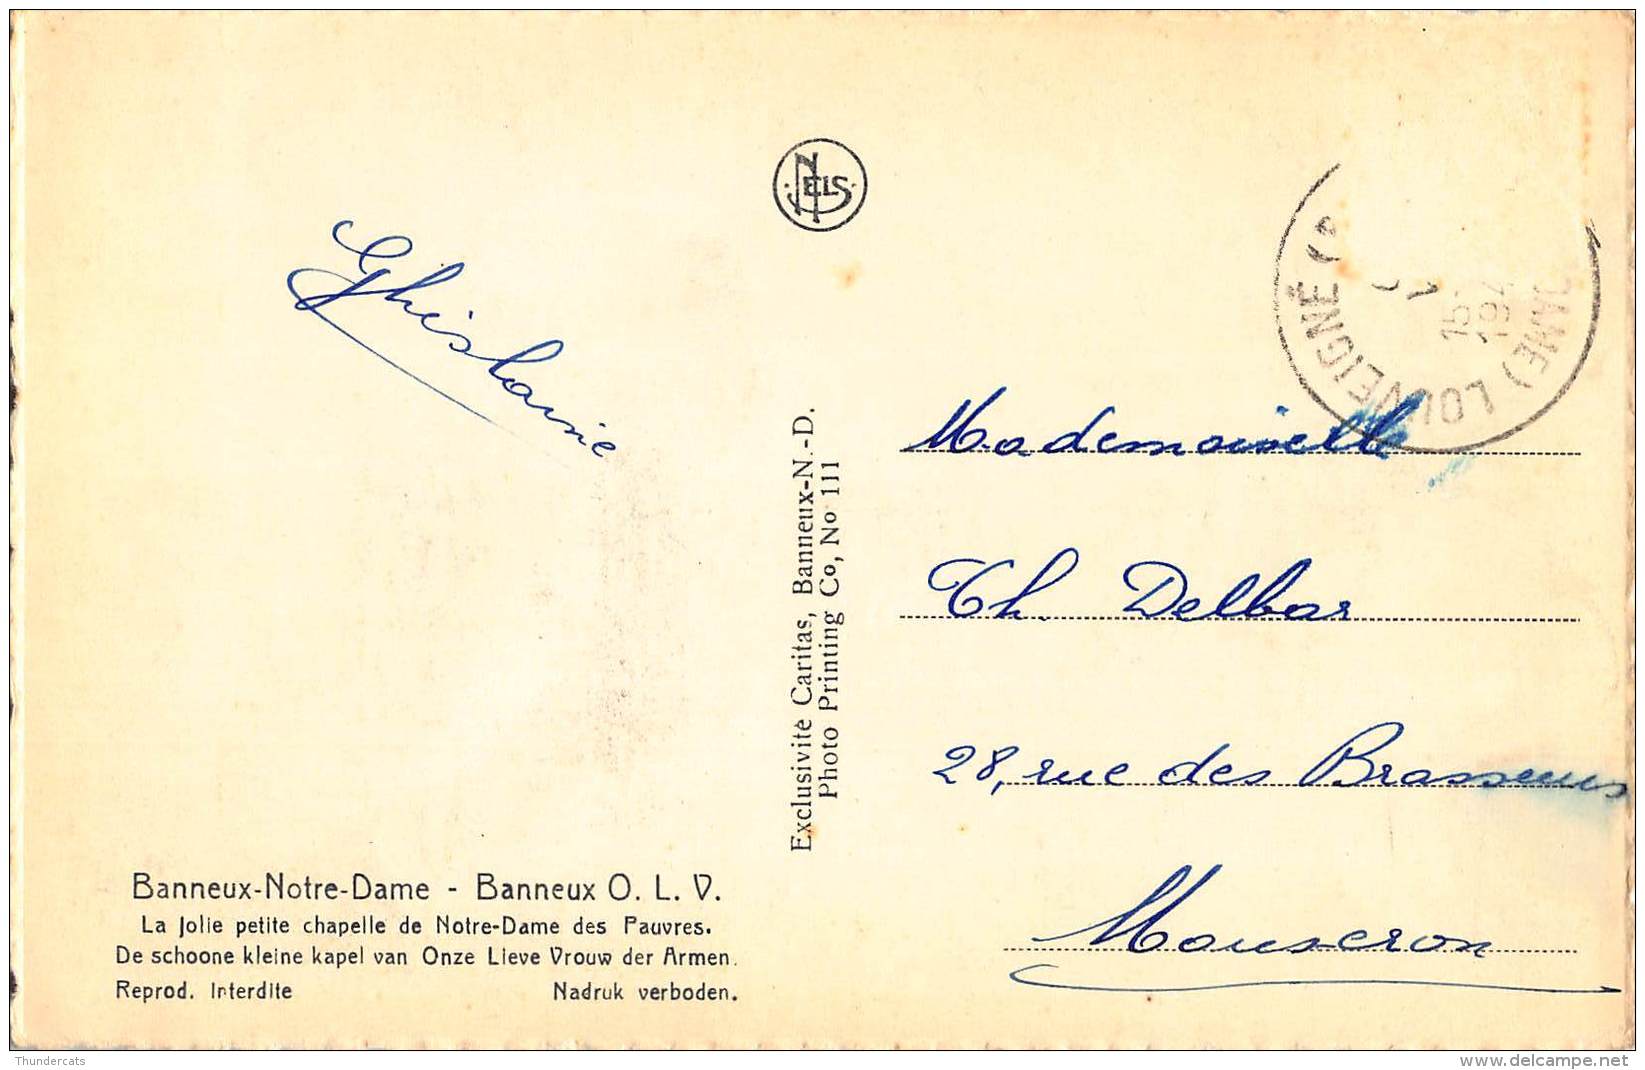 NELS
LOUVEIGNÉ (
Ghislaine
Mademoiselle
Th. Delbar
28, rue des Brasseurs
Mouscron
Exclusivite Caritas, Banneux-N.-D.
Photo Printing Co, No 111
Banneux-Notre-Dame - Banneux O. L. V.
La Jolie petite chapelle de Notre-Dame des Pauvres.
De schoone kleine kapel van Onze Lieve Vrouw der Armen.
Reprod. Interdite Nadruk verboden.
Thundercats
delcampe.net